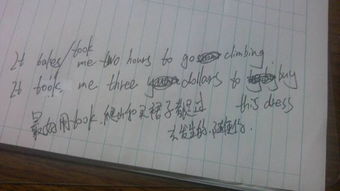 It takes/took me two hours to go climbing
It took me three dollars to buy
this dress
最好用took.爬山和买裙子都是过
去发生的.